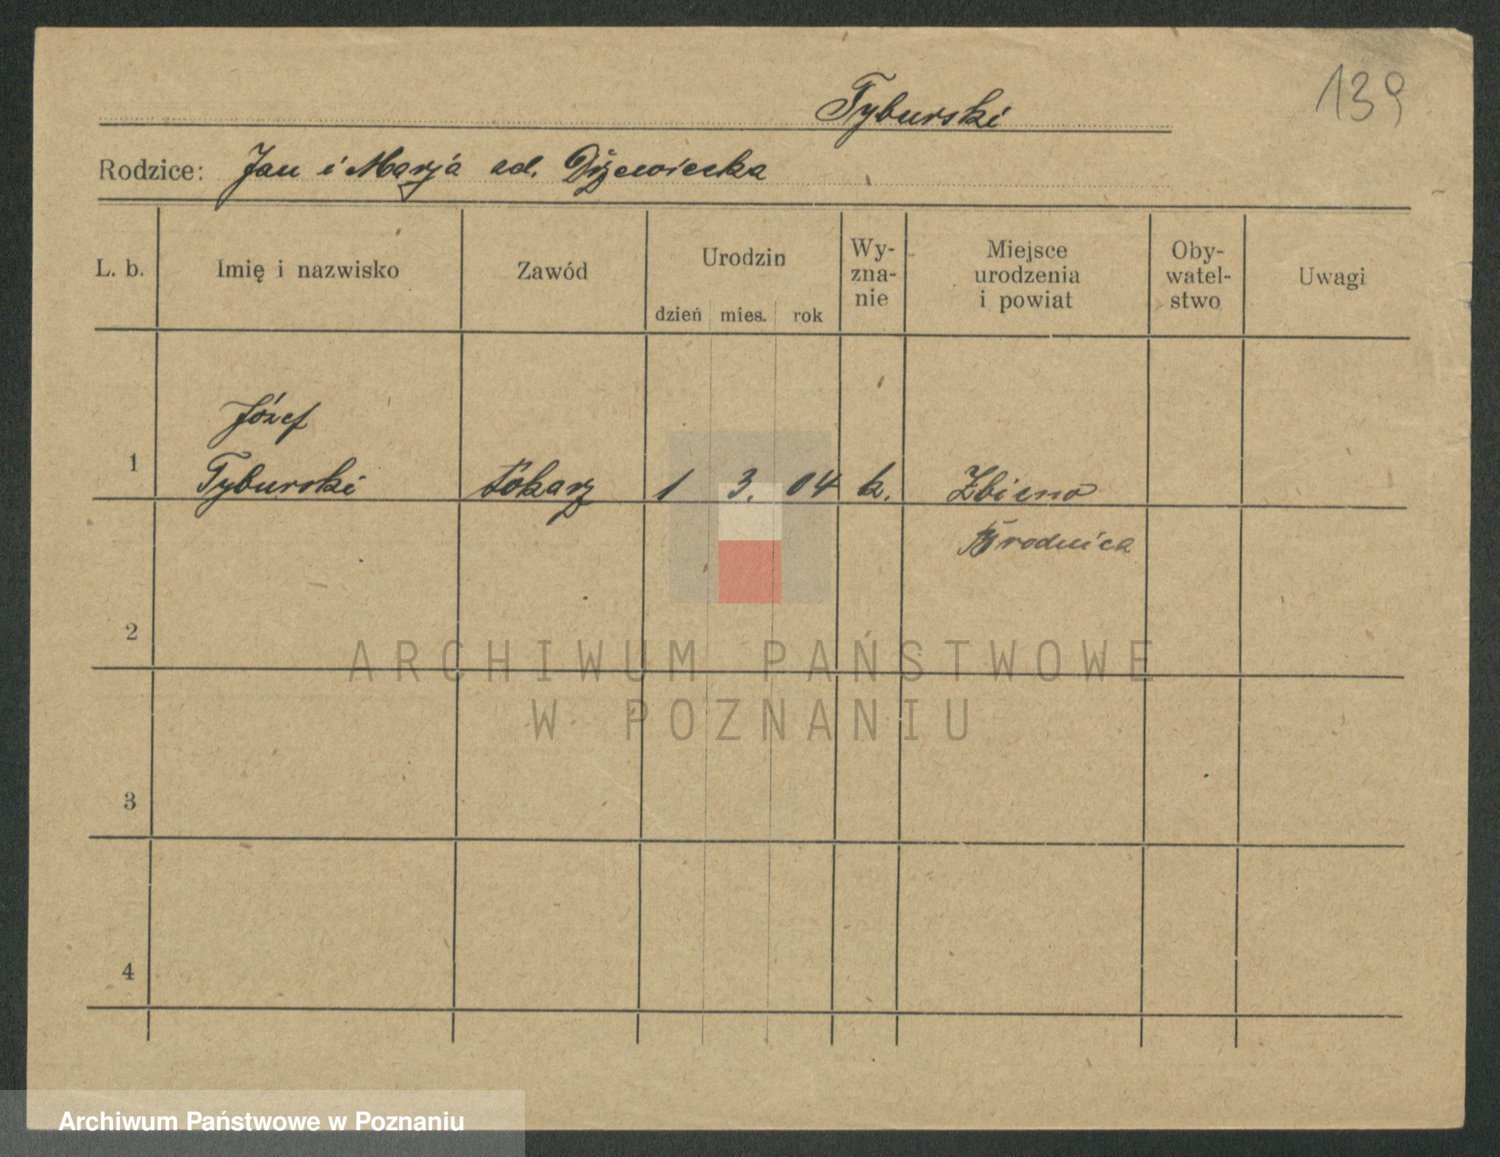 139
Tyburski
Rodzice: Jan i Marja
L. b.
Imię i nazwisko
Zawód
Urodzin
dzień mies. rok
Wy-
zna-
nie
Miejsce
urodzenia
i powiat
Oby-
watel-
stwo
Uwagi
Józef
1 Tyburski tokarz 1 3. 04 k. Zbiczno
Brodnica
2
3
4
ARCHIWUM PAŃSTWOWE
W POZNANIU
Archiwum Państwowe w Poznaniu